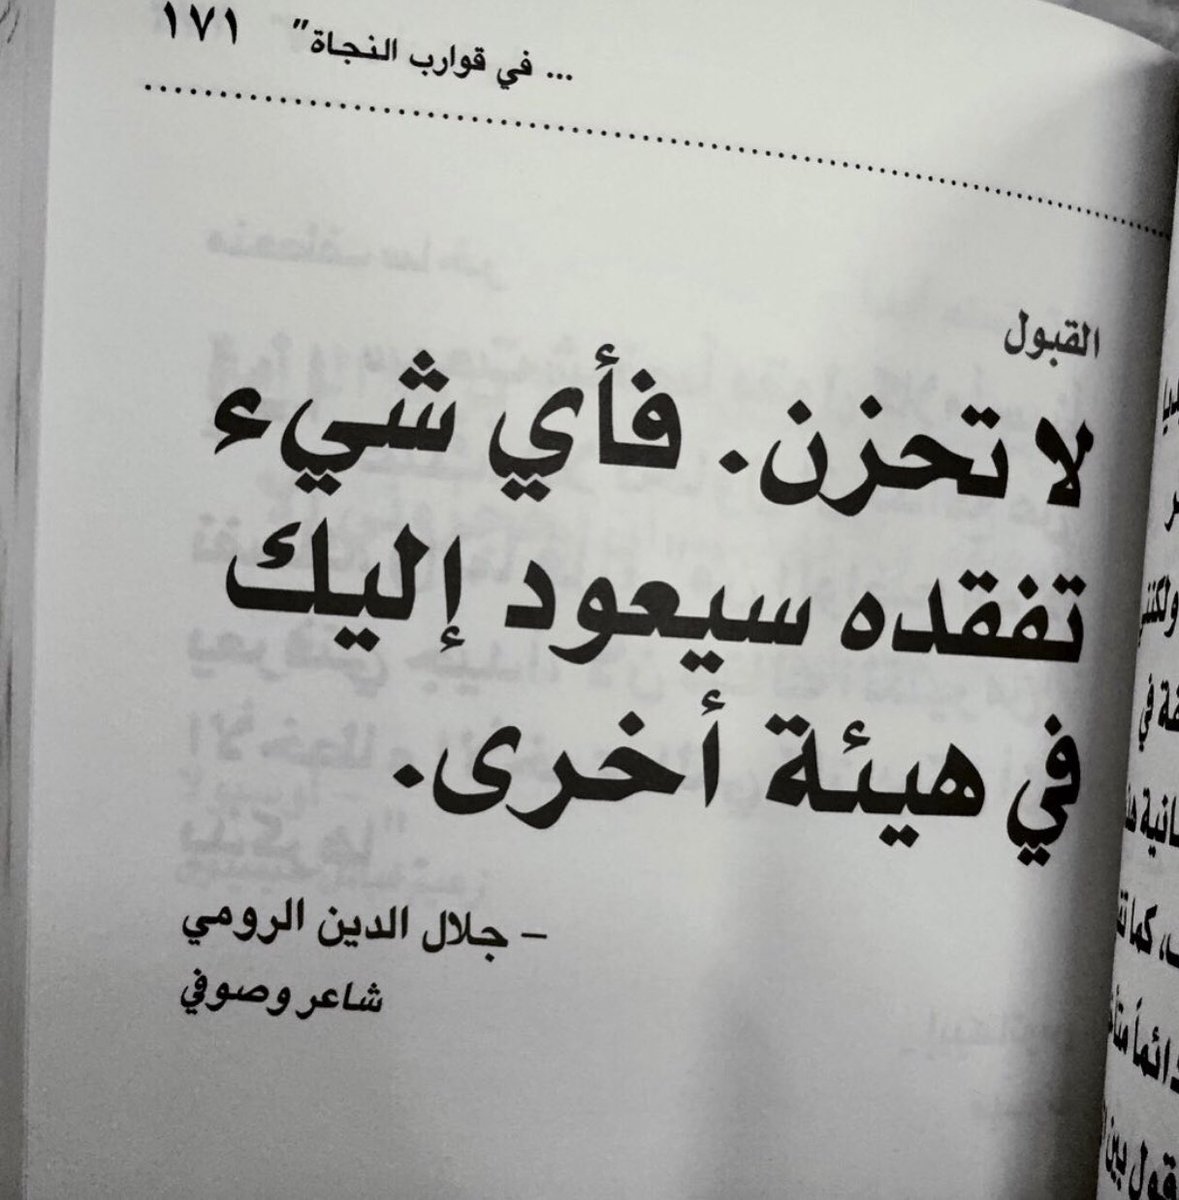 ... في قوارب النجاة" ١٧١
القبول
لا تحزن. فأي شيء
تفقده سيعود إليك
في هيئة أخرى.
– جلال الدين الرومي
شاعر وصوفي
ولكنني
كما
دائماً
بين